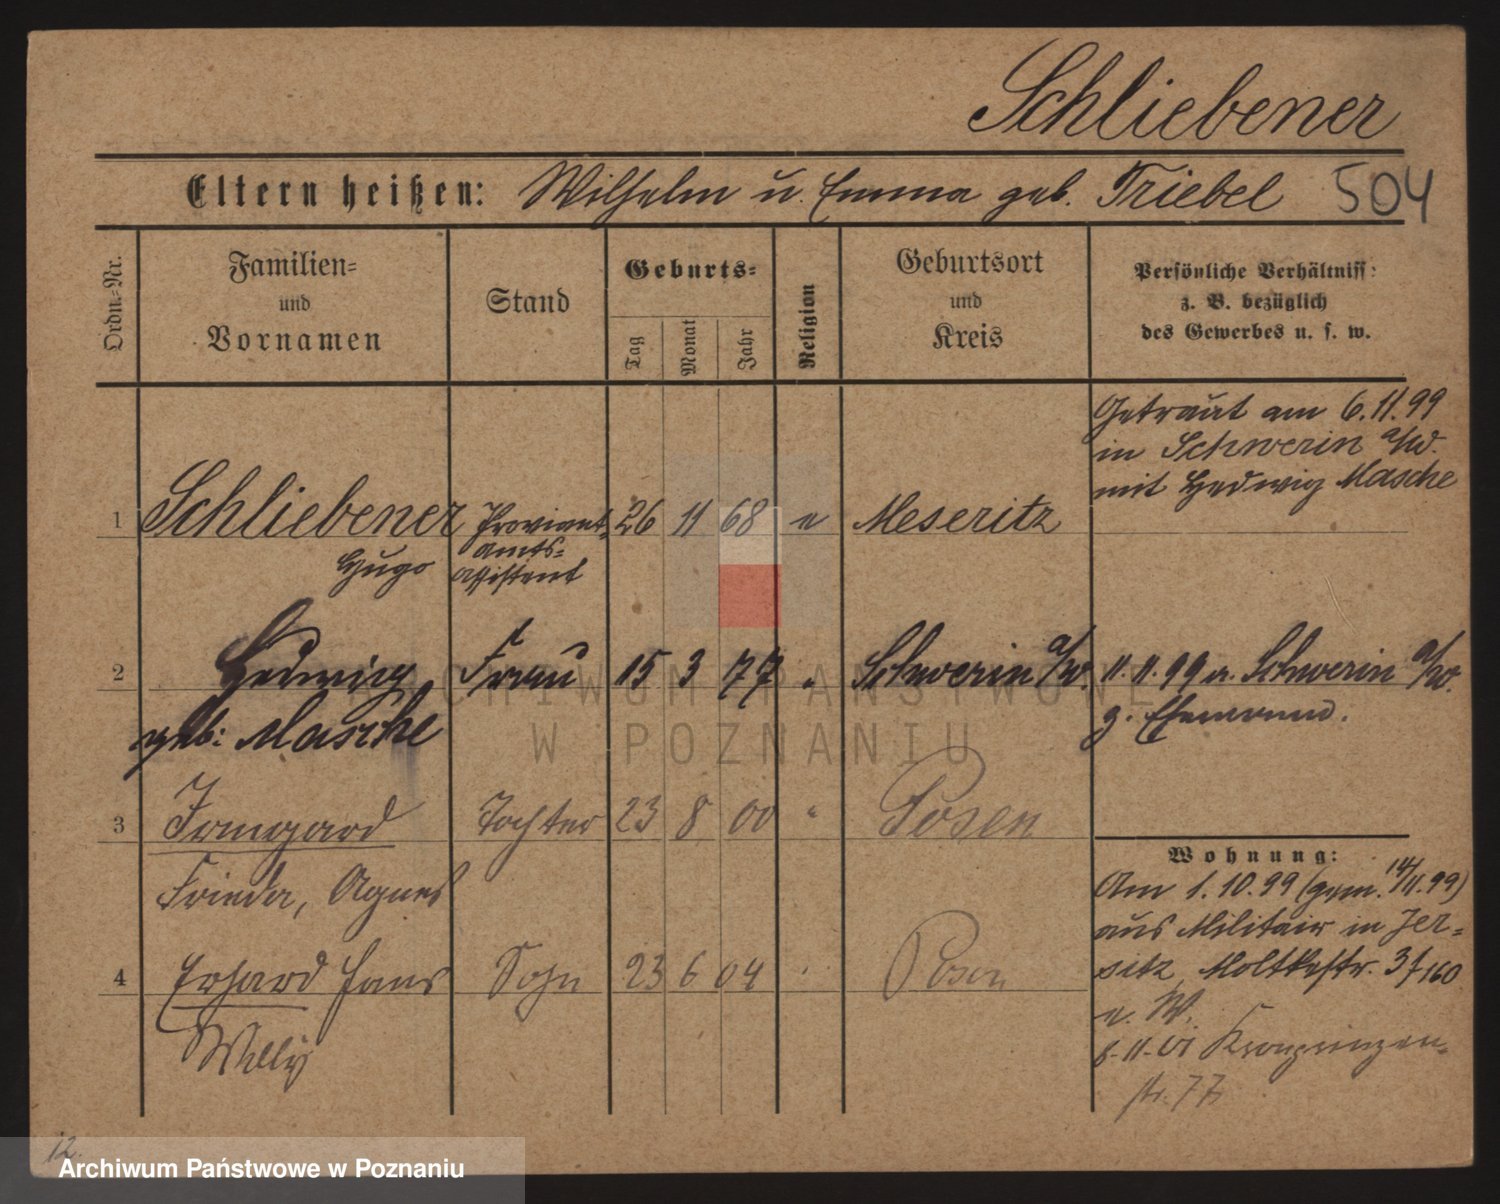 Schliebener
Eltern heißen: Wilhelm u. Emma geb. Triebel 504
Ordn.-Nr.
Familien-
und
Vornamen
Stand
Geburts-
Tag
Monat
Jahr
Religion
Geburtsort
und
Kreis
Persönliche Verhältniss:
z. B. bezüglich
des Gewerbes u. s. w.
Getraut am 6.11.99
in Schwerin a/W.
mit Hedwig Masche
1 Schliebener Proviant- 26 11 68 e Meseritz
Hugo amts-
assistent
2 Hedwig Frau 15 3 77 " Schwerin a/W. 11.11.99 a. Schwerin a/W.
geb: Masche z. Ehemann.
3 Irmgard Tochter 23 8 00 " Posen
Frieda, Agnes
Wohnung:
Am 1.10.99 (gem. 14/11.99)
aus Militair in Jer-
sitz, Moltkestr. 3/160
4 Erhard Hans Sohn 23 6 04 " Posen
Willy
v. W.
8.11.01 Kronprinzen-
str. 77
12.
ARCHIWUM PAŃSTWOWE
W POZNANIU
Archiwum Państwowe w Poznaniu